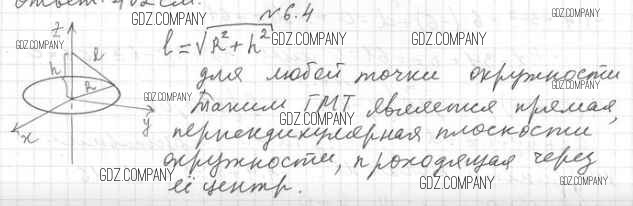 Ответ: 4√2 см.
№6.4
l = √R² + h²
для любой точки окружности
таким ГМТ является прямая,
перпендикулярная плоскости
окружности, проходящая через
её центр.
z
h
l
R
x
y
GDZ.COMPANY
GDZ.COMPANY
GDZ.COMPANY
GDZ.COMPANY
GDZ.COMPANY
GDZ.COMPANY
GDZ.COMPANY
GDZ.COMPANY
GDZ.COMPANY
GDZ.COMPANY
GDZ.COMPANY
GDZ.COMPANY